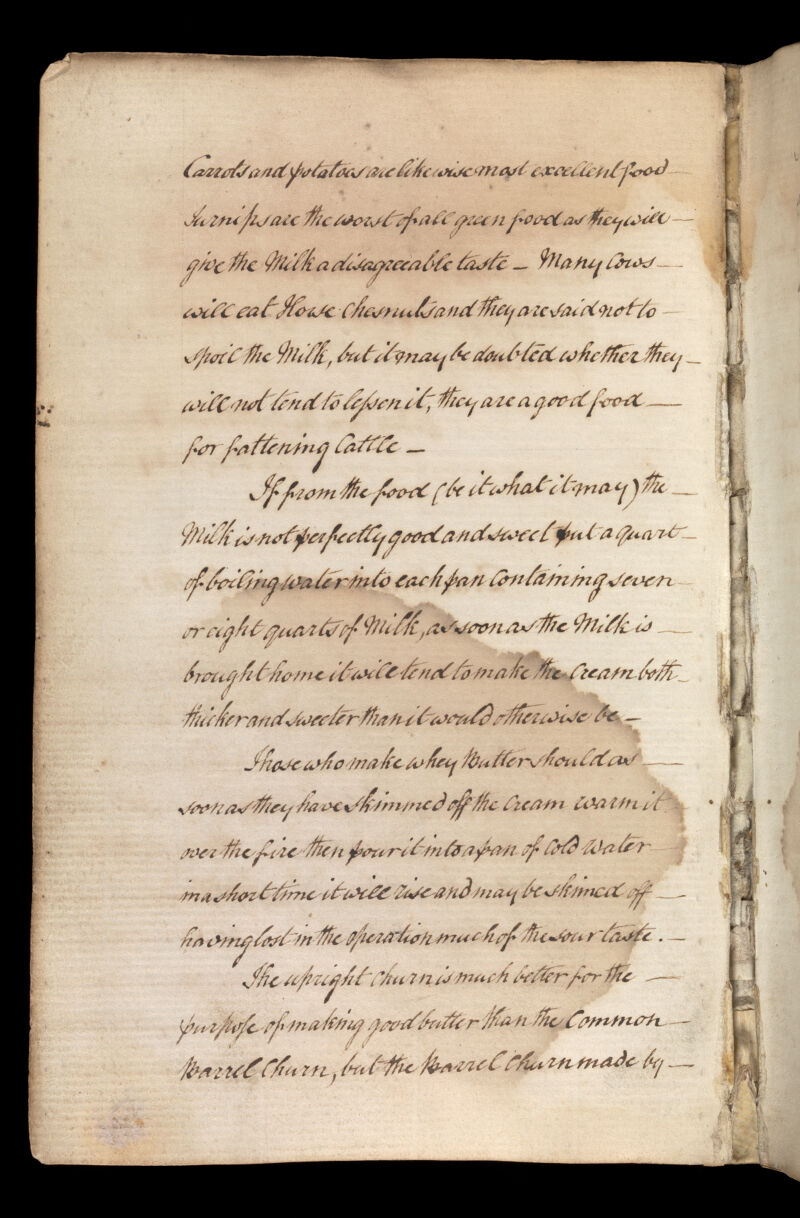 Carrots and potatoes are likewise most excellent food —
Turnips are the worst of all green food as they will —
give the Milk a disagreeable taste — Many Cows —
will eat Horse Chesnuts and they are said not to —
spoil the Milk, but it may be doubted whether they —
will not tend to leſsen it, they are a good food —
for fattening Cattle —
If from the food (be it what it may) the —
Milk is not perfectly good and sweet put a quart —
of boiling water into each pan Containing seven —
or eight quarts of Milk, as soon as the Milk is —
brought home it will tend to make the Cream both —
thicker and sweeter than it would otherwise be —
Those who make whey Butter should as —
soon as they have skimmed off the Cream warm it
over the fire then pour it into a pan of Cold Water —
in a short time it will rise and may be skimed off —
having lost in the operation much of the sour taste. —
The upright Churn is much better for the —
purpose of making good butter than the Common —
Barrel Churn, but the Barrel Churn made by —